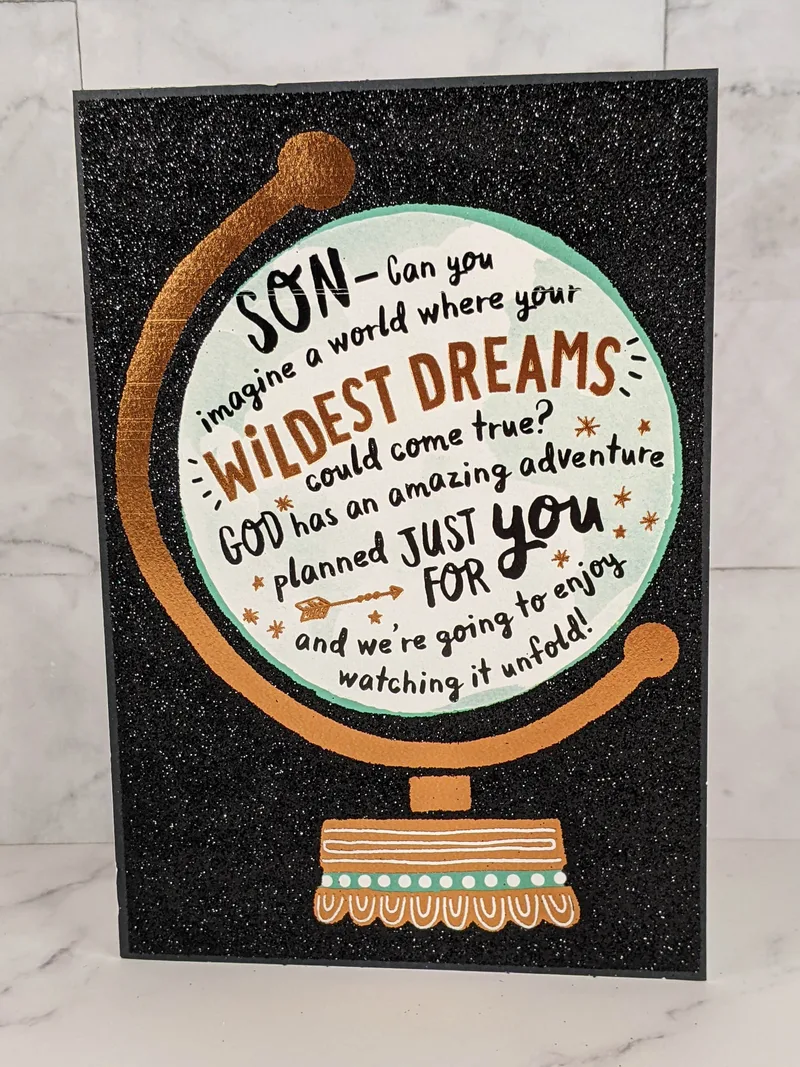 SON — Can you
imagine a world where your
WiLDEST DREAMS
could come true?
GOD has an amazing adventure
planned JUST you
FOR
and we're going to enjoy
watching it unfold!